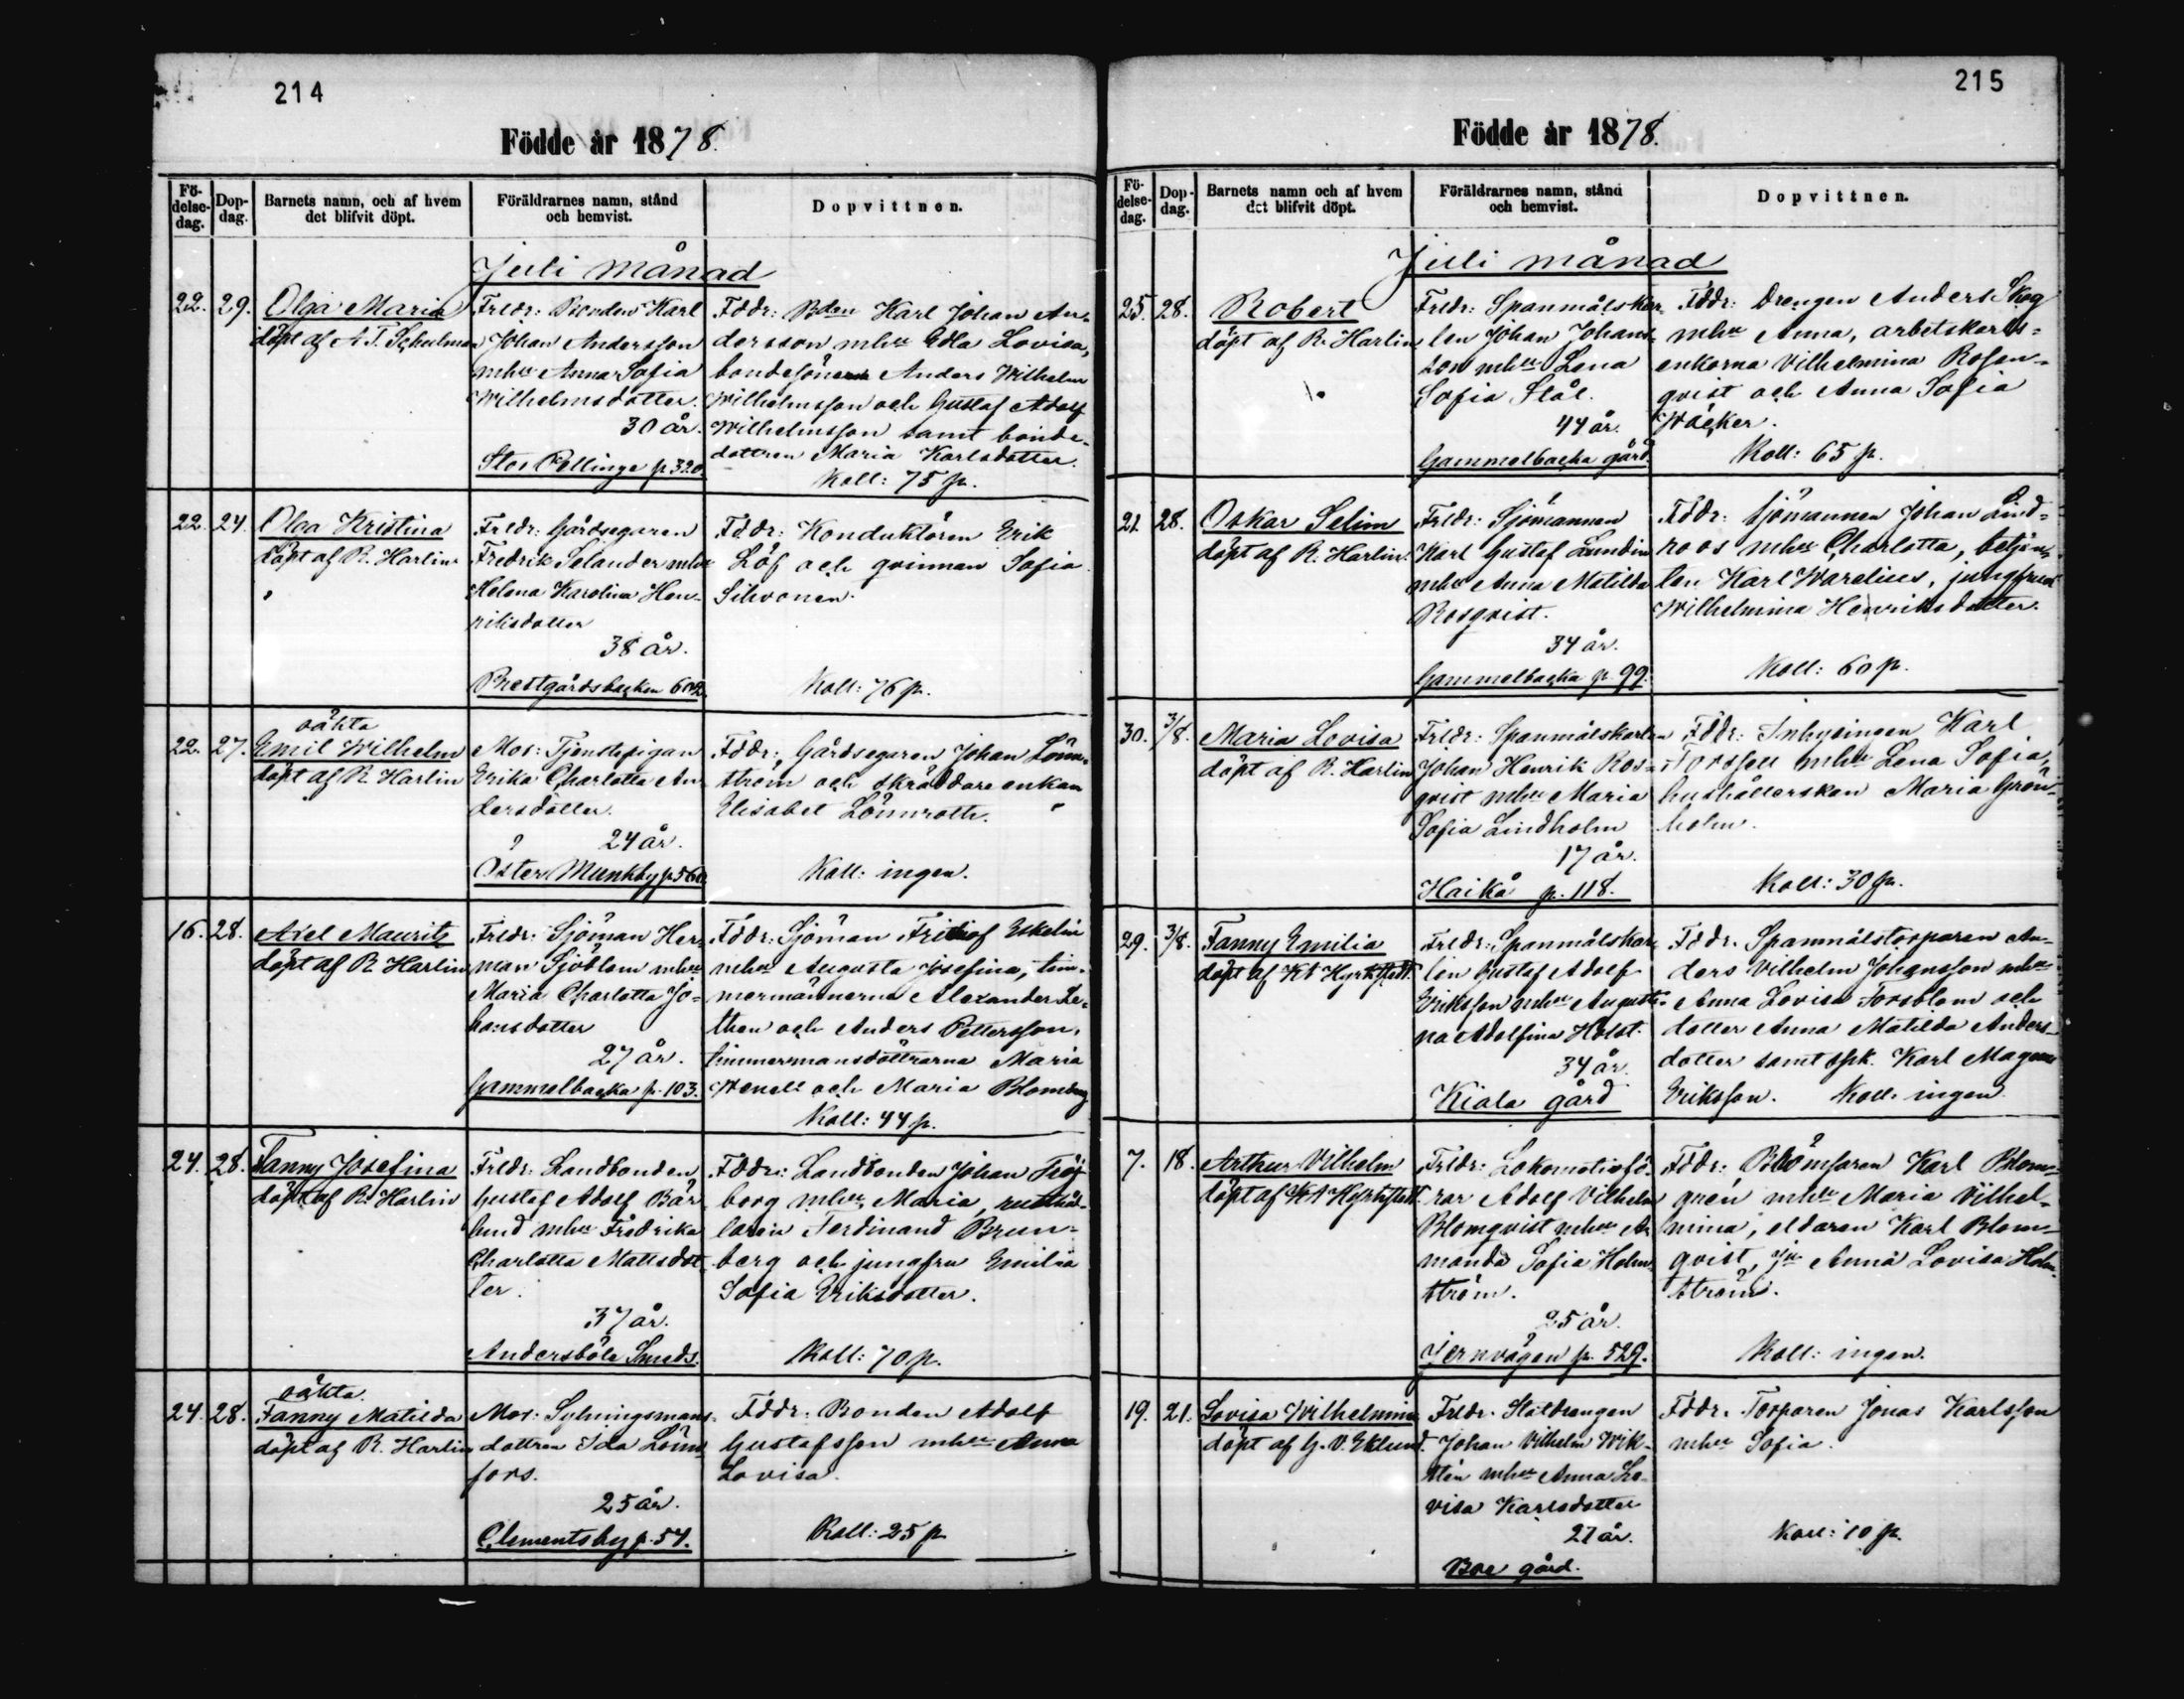 214
Födde år 1878.
Fö-
delse-
dag.
Dop-
dag.
Barnets namn, och af hvem
det blifvit döpt.
Föräldrarnes namn, stånd
och hemvist.
Dopvittnen.
Juli månad
22. 29.
Olga Maria
döpt af A. T. Schulman
Frldr: Bonden Karl
Johan Andersson
mhu Anna Sofia
Wilhelmsdotter.
30 år.
Stor Pellinge p. 320.
Fddr: Bden Karl Johan An-
dersson mhu Edla Lovisa,
bondesönerna Anders Wilhelm
Wilhelmsson och Gustaf Adolf
Wilhelmsson samt bonde-
dottren Maria Karlsdotter.
Koll: 75 p.
22. 24.
Olga Kristina
döpt af R. Harlin
Frldr: Gårdsegaren
Fredrik Selander mhu
Helena Karolina Hen-
riksdotter
38 år.
Prestgårdsbacken 602.
Fddr: Konduktören Erik
Löf och qvinnan Sofia
Silvonen.
Koll: 76 p.
22. 27.
oäkta
Emil Wilhelm
döpt af R. Harlin
Mor: Tjenstepigan
Erika Charlotta An-
dersdotter.
? 24 år.
Öster Munkby p. 560
Fddr: Gårdsegaren Johan Lönn-
ström och skräddare enkan
Elisabet Lönnroth.
Koll: ingen.
16. 28.
Axel Mauritz
döpt af R. Harlin
Frldr: Sjöman Her-
man Sjöblom mhu
Maria Charlotta Jo-
hansdotter
27 år.
Gammelbacka p. 103.
Fddr: Sjöman Frithiof Eskelin
mhu Augusta Josefina, tim-
mermännerna Alexander Le-
then och Anders Pettersson,
timmermansdöttrarna Maria
och Maria Blomberg
Koll: 44 p.
24. 28.
Fanny Josefina
döpt af R. Harlin
Frldr: Landbonden
Gustaf Adolf Bär-
lund mhu Fredrika
Charlotta Mattsdot-
ter.
37 år.
Andersböle Smeds.
Fddr: Landbonden Johan Fröj-
berg mhu Maria, rusthål-
laren Ferdinand Brun-
berg och jungfru Emilia
Sofia Eriksdotter.
Koll: 70 p.
24. 28.
oäkta.
Fanny Matilda
döpt af R. Harlin
Mor: Sytningsmans-
dottren Ida Lönn-
fors.
25 år.
Clementsby p. 54.
Fddr: Bonden Adolf
Gustafsson mhu Anna
Lovisa.
Koll: 25 p
215
Födde år 1878.
Fö-
delse-
dag.
Dop-
dag.
Barnets namn och af hvem
det blifvit döpt.
Föräldrarnes namn, stånd
och hemvist.
Dopvittnen.
Juli månad
25. 28.
Robert
döpt af R. Harlin
Frldr: Spanmålskar-
len Johan Johans-
son mhu Lena
Sofia Stål.
44 år.
Gammelbacka gård.
Fddr: Drengen Anders Skog
mhu Anna, arbetskarls-
enkorna Vilhelmina Rosen-
qvist och Anna Sofia
Wäcker.
Koll: 65 p.
21 28.
Oskar Selim
döpt af R. Harlin.
Frldr: Sjömannen
Karl Gustaf Lundin
mhu Anna Matilda
Rosqvist.
34 år.
Gammelbacka p. 99.
Fddr: Sjömannen Johan Lind-
roos mhu Charlotta, betjen-
ten Karl Warelius, jungfrun
Wilhelmina Henriksdotter.
Koll: 60 p.
30. 3/8.
Maria Lovisa
döpt af R. Harlin
Frldr: Spanmålskarlen
Johan Henrik Ros-
qvist mhu Maria
Sofia Lindholm
17 år.
Haikå p. 118.
Fddr: Inhysingen Karl
Forssell mhu Lena Sofia,
hushållerskan Maria Grön-
holm.
Koll: 30 p.
29. 3/8.
Fanny Emilia
döpt af KA Hyrkstedt.
Frldr: Spanmålskar-
len Gustaf Adolf
Eriksson mhu Augusti-
na Adolfina Holst.
34 år.
Kiala gård
Fddr. Spanmålstorparen An-
ders Vilhelm Johansson mhu
Anna Lovisa Forsblom och
dotter Anna Matilda Anders-
dotter samt spk. Karl Magnus
Eriksson. Koll. ingen
7. 18.
Arthur Vilhelm
döpt af KA Hyrkstedt.
Frldr: Lokomotivfö-
rar Adolf Vilhelm
Blomqvist mhu A-
manda Sofia Holm-
ström.
25 år.
Jernvägen p. 529.
Fddr: Karl Blom-
mhu Maria Vilhel-
mina, eldaren Karl Blom-
qvist, jfr Anna Lovisa Holm-
ström.
Koll: ingen.
19. 21.
Lovisa Wilhelmina
döpt af G. V. Eklund.
Frldr. Statdrengen
Johan Vilhelm Wik-
stén mhu Anna Lo-
visa Karlsdotter
27 år.
Boe gård.
Fddr. Torparen Jonas Karlsson
mhu Sofia.
Koll: 10 p.